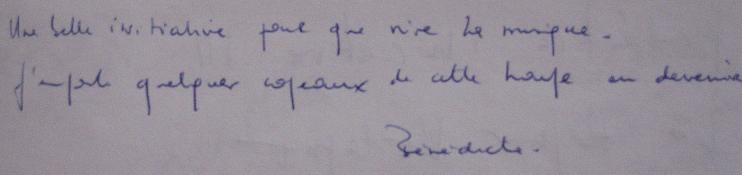 Une belle initiative pour que vive la musique.
J'emporte quelques copeaux de cette harpe en devenir
Bénédicte.